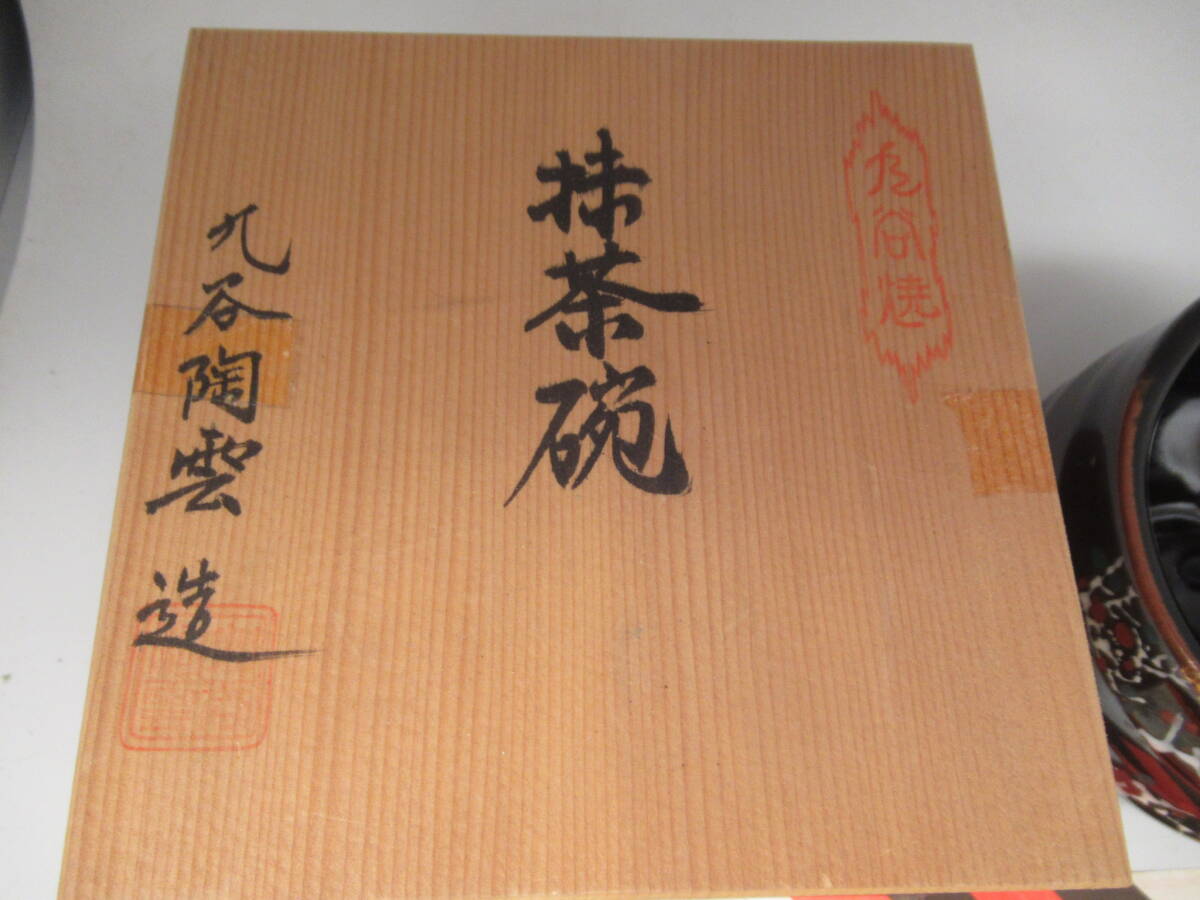 九谷焼
抹茶碗
九谷陶雲造